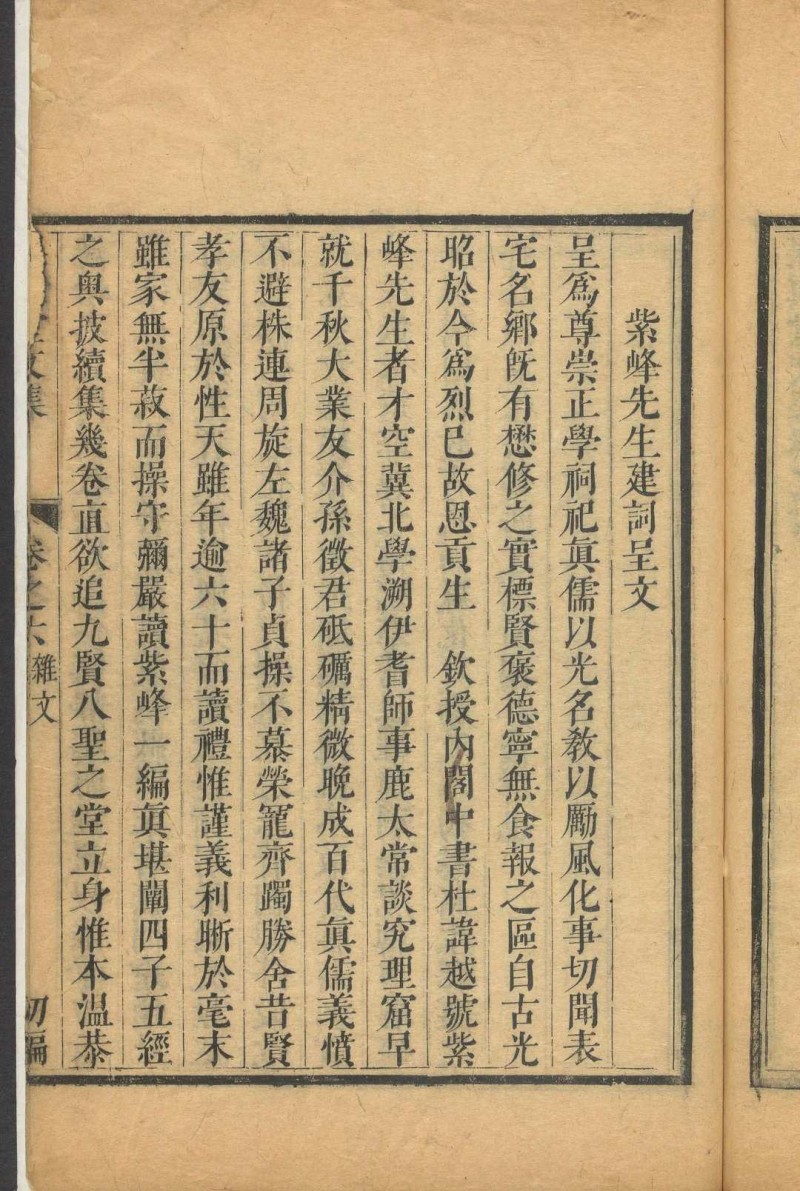 紫峰先生建詞呈文
呈為尊崇正學祠祀眞儒以光名教以勵風化事切聞表
宅名鄉旣有懋修之實標賢褒德寧無食報之區自古光
昭於今爲烈已故恩貢生 欽授內閣中書杜諱越號紫
峰先生者才空冀北學溯伊耆師事鹿太常談究理窟早
就千秋大業友介孫徵君砥礪精微晚成百代眞儒義憤
不避株連周旋左魏諸子貞操不慕榮寵齊躅勝舍昔賢
孝友原於性天雖年逾六十而讀禮惟謹義利晰於毫末
雖家無半菽而操守彌嚴讀紫峰一編眞堪闡四子五經
之奧披續集幾卷直欲追九賢八聖之堂立身惟本温恭
文集
卷之六 雜文
初編